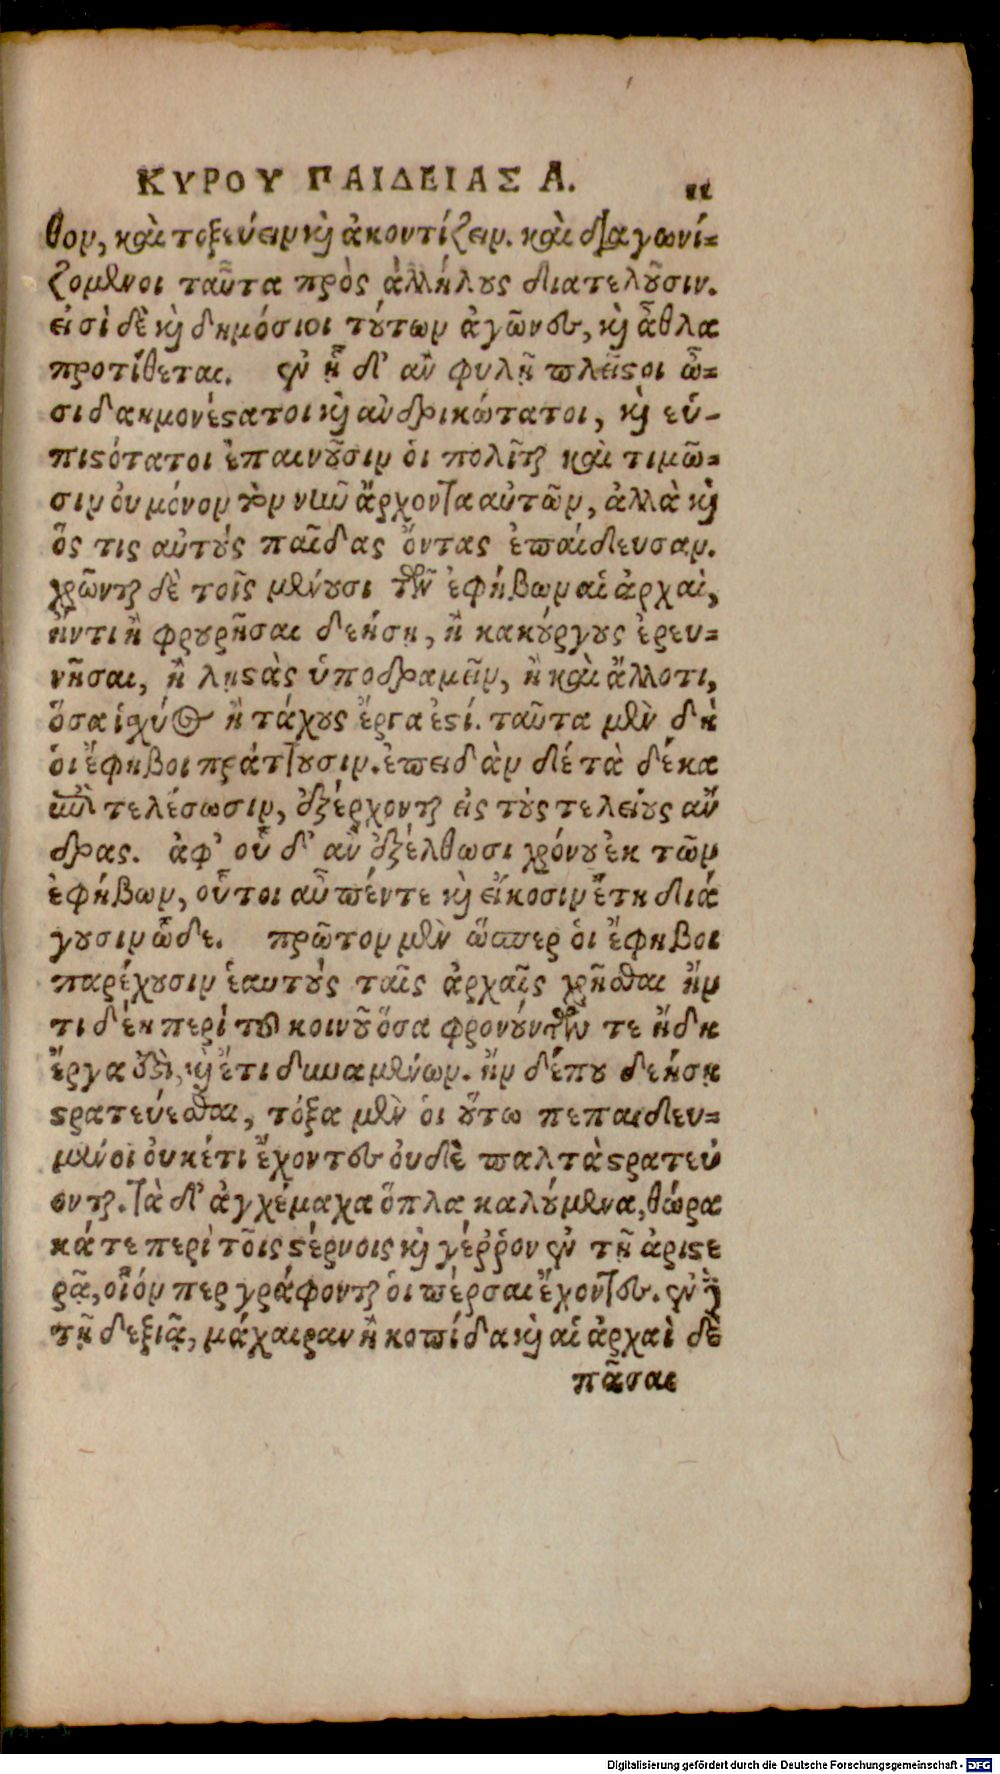 ΚΥΡΟΥ ΠΑΙΔΕΙΑΣ Α. 11
θον, καὶ τοξεύειν καὶ ἀκοντίζειν. καὶ διαγωνί-
ζομενοι ταῦτα πρὸς ἀλλήλους διατελοῦσιν.
εἰσὶ δὲ καὶ δημόσιοι τούτων ἀγῶνες, καὶ ἆθλα
προτίθεται. ἐν ᾗ δ' ἂν φυλῇ πλεῖστοι ὦ-
σι δαημονέστατοι καὶ ἀνδρικώτατοι, καὶ εὐ-
πιστότατοι ἐπαινοῦσιν ὁι πολῖται καὶ τιμῶ-
σιν ὀυ μόνον τὸν νῦν ἄρχοντα αὐτῶν, ἀλλὰ καὶ
ὅς τις αὐτοὺς παῖδας ὄντας ἐπαίδευσαν.
χρῶνται δὲ τοῖς μένουσι τῶν ἐφήβων αἱ ἀρχαὶ,
ἤντι ἢ φρουρῆσαι δεήσῃ, ἢ κακούργους ἐρευ-
νῆσαι, ἢ λῃστὰς ὑποδραμεῖν, ἢ καὶ ἄλλοτι,
ὅσα ἰσχύος ἢ τάχους ἔργα ἐστί. ταῦτα μὲν δὴ
ὁι ἔφηβοι πράττουσιν. ἐπειδὰν δέ τὰ δέκα
ἔτη τελέσωσιν, ἐξέρχονται εἰς τοὺς τελείους ἄν
δρας. ἀφ' οὗ δ' ἂν ἐξέλθωσι χρόνου ἐκ τῶν
ἐφήβων, οὗτοι αὖ πέντε καὶ εἴκοσιν ἔτη διά
γουσιν ὧδε. πρῶτον μὲν ὥσπερ ὁι ἔφηβοι
παρέχουσιν ἑαυτοὺς ταῖς ἀρχαῖς χρῆσθαι ἤν
τι δέῃ περὶ τοῦ κοινοῦ ὅσα φρονούντων τε ἤδη
ἔργα ἐστὶ, καὶ ἔτι δυναμένων. ἤν δέπου δεήσῃ
στρατεύεσθαι, τόξα μὲν ὁι οὕτω πεπαιδευ-
μένοι ὀυκέτι ἔχοντες ὀυδὲ παλτὰ στρατεύ
ονται. τὰ δ' ἀγχέμαχα ὅπλα καλούμενα, θώρα
κά τε περὶ τοῖς στέρνοις καὶ γέῤῥον ἐν τῇ ἀριστε
ρᾷ, οἷόν περ γράφονται ὁι πέρσαι ἔχοντες. ἐν δὲ
τῇ δεξιᾷ, μάχαιραν ἢ κοπίδα καὶ αἱ ἀρχαὶ δὲ
πᾶσαι
Digitalisierung gefördert durch die Deutsche Forschungsgemeinschaft - DFG